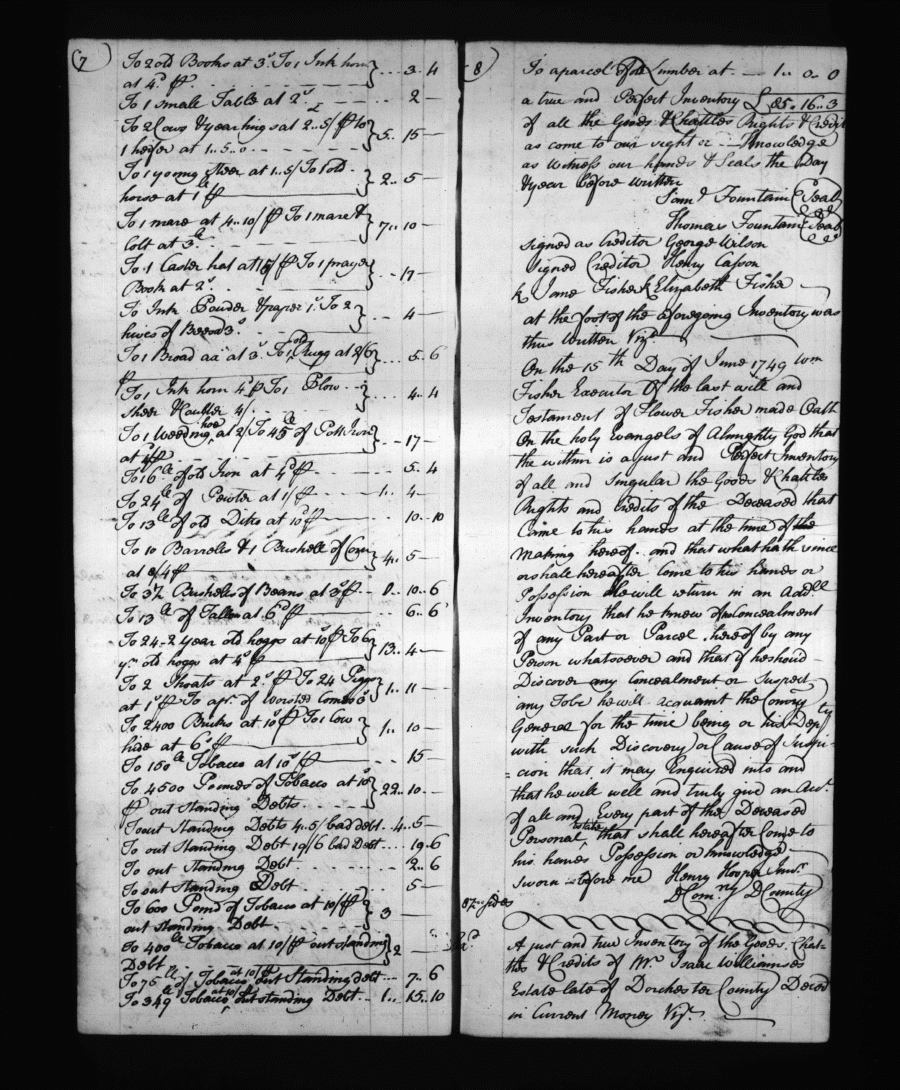 7
To 2 old Books at 3s To 1 Ink horn
at 4d ℔ } ... 3.. 4
To 1 small Table at 2s - - - - 2 —
To 2 Cows & yearlings at 2..5/ ℔ To
1 heifer at 1..5..0 } 5.. 15 —
To 1 young Steer at 1..5/ To 1 old
horse at 1£ ℔ } 2.. 5 —
To 1 mare at 4..10/ ℔ To 1 mare &
Colt at 3£ } 7.. 10 —
To 1 Caster hat at 15/ ℔ To 1 prayer
Book at 2s } .. 17 —
To Ink Powder & paper 1s To 2
hives of Bees at 3s } .. 4 —
To 1 Broad ax at 3s To 1 old Rugg at 2/6
℔ } ... 5.. 6
To 1 Ink horn 4d ℔ To 1 Plow
4/ } .. 4.. 4
To 1 Weeding hoe at 2/ To 45lb of Pott Iron
at ℔ } .. 17 —
To 16lb of old Iron at 4d ℔ - - - 5.. 4
To 24lb of Pewter at 1/ ℔ - - - 1.. 4 —
To 13lb of old Ditto at 10d ℔ - - 10.. 10
To 10 Barrells & 1 Bushell of Corn
at 8/4 ℔ } 4.. 5 —
To 3½ Bushells of Beans at 3s ℔ - 0.. 10.. 6
To 13lb of Tallow at 6d ℔ - - 6.. 6
To 24 - 2 year old hoggs at 10s ℔ To 6
yr old hoggs at 4s ℔ } 13.. 4 —
To 2 Shoats at 2s ℔ To 24 Piggs
at 1s ℔ To a pr of worsted Combs 5s } 1.. 11 —
To 2400 Bricks at 10s ℔ To 1 Cow
hide at 6s ℔ } 1.. 10
To 150lb Tobacco at 10s ℔ - - 15 —
To 4500 Pounds of Tobacco at 10s
℔ out standing Debts } 22.. 10 —
To out Standing Debts 4..5/ bad debt .. 4.. 5 —
To out Standing Debt 19/6 bad Debt ... 19.. 6
To out Standing Debt - - - 2.. 6
To out Standing Debt - - - 5 —
To 600 Pound of Tobacco at 10/ ℔
out standing Debt } 3 —
To 400lb Tobacco at 10/ ℔ out standing
Debt } 2 —
To 75lb of Tobacco at 10/ ℔ out Standing debt ... 7.. 6
To 349lb Tobacco at 10/ ℔ out standing Debt .. 1.. 15.. 10
8
To a parcel of Lumber at — 1.. 0.. 0
a true and Perfect Inventory £ 85.. 16.. 3
of all the Goods & Chattles Rights & Credit
as come to our sight or Knowledge
as Witness our hands & Seals the Day
& year before written
Saml Fountain (Seal)
Thomas Fountain (Seal)
Signed as Creditor George Wilson
Signed Creditor Henry Casson
k Jane Fisher k Elizabeth Fisher
at the foot of the aforegoing Inventory was
thus Written Vizt
On the 15th Day of June 1749 Wm
Fisher Executor Of the last will and
Testament of Flower Fisher made Oath
On the holy Evangels of Almighty God that
the within is a just and Perfect Inventory
of all and Singular the Goods & Chattles
Rights and Credits of the Deceased that
Came to his hands at the time of the
making hereof. and that what hath since
or shall hereafter come to his hands or
Possession he will return in an Addll
Inventory that he knew of no Concealment
of any Part or Parcel, hereof by any
Person whatsoever and that if he should
Discover any concealment or Suspect
any To be he will acquaint the Comry
General for the time being or his Depty
with such Discovery or Cause of Suspi-
cion that it may Enquired into and
that he will well and truly give an Acct
of all and Every part of the Deceased
Personal Estate that shall hereafter Come to
his hands Possession or knowledge
Sworn before me Henry Hooper Junr
D Comry D County
87 sides
A just and true Inventory of the Goods. Chat-
tles & Credits of Mr Isaac Williams's
Estate late of Dorchester County Decd
in Current Money Vizt